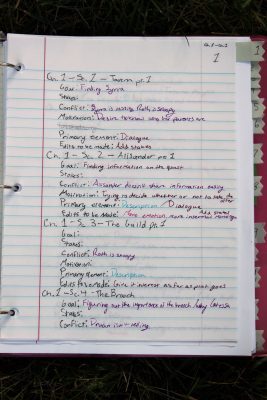 Ch. 1-Sc. 1
1
Ch. 1 - Sc. 1 - Tavern pt. 1
Goal: Finding
Stakes:
Conflict: is missing, Roth is snoopy
Motivation: Desire to know who her parents are
Primary element: Dialogue
Edits to be made: Add stakes
Ch. 1 - Sc. 2 - pt. 1
Goal: Finding information on the
Stakes:
Conflict: doesn't share information easily
Motivation: Trying to decide whether or not to take the offer
Primary element: Description / Dialogue
Edits to be made: More emotion, more internal Add stakes
Ch. 1 - Sc 3 - The Guild pt. 1
Goal:
Stakes:
Conflict: Roth is snoopy
Motivation:
Primary element: Description
Edits to be made: Give it interest as far as plot goes
Ch. 1 - Sc. 4 - The Brooch
Goal: Figuring out the importance of the brooch /
Stakes:
Conflict: isn't